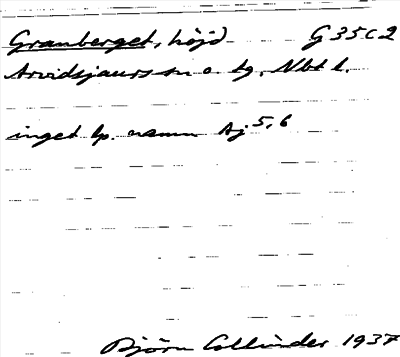 Granberget, höjd G 35 c 2
Arvidsjaurs sn o. tg, Nbt l.
inget lp. namn Aj 5, 6
Björn Collinder 1937